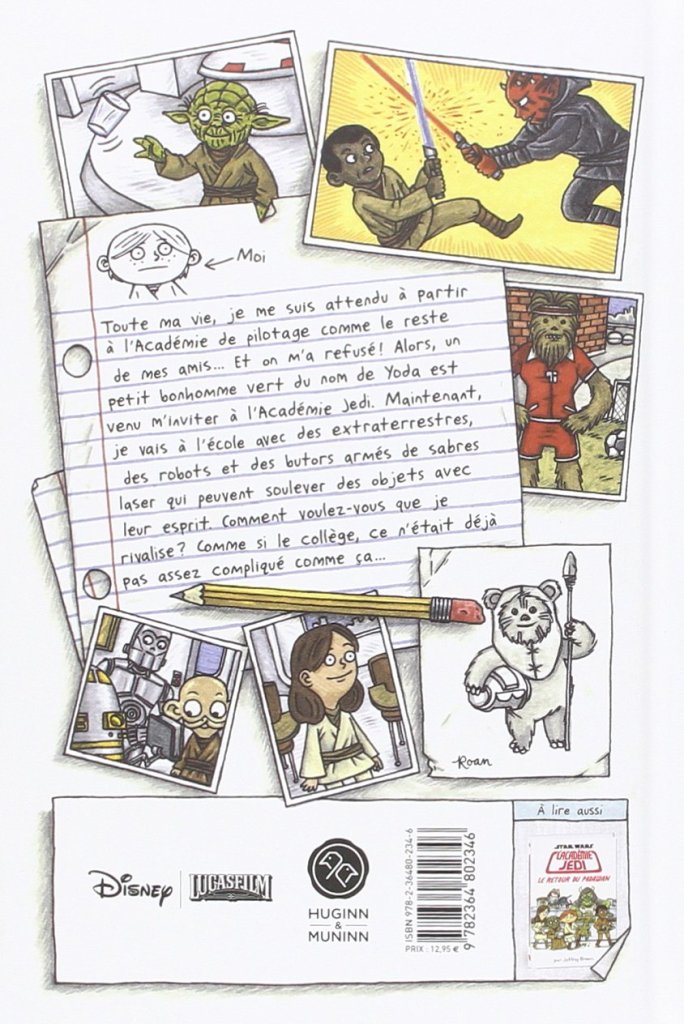 Moi
Toute ma vie, je me suis attendu à partir
à l'Académie de pilotage comme le reste
de mes amis... Et on m'a refusé! Alors, un
petit bonhomme vert du nom de Yoda est
venu m'inviter à l'Académie Jedi. Maintenant,
je vais à l'école avec des extraterrestres,
des robots et des butors armés de sabres
laser qui peuvent soulever des objets avec
leur esprit. Comment voulez-vous que je
rivalise? Comme si le collège, ce n'était déjà
pas assez compliqué comme ça...
Roan
Disney
LUCASFILM
HUGINN
&
MUNINN
ISBN 978-2-36480-234-6
PRIX : 12,95 €
9 782364 802346
À lire aussi
STAR WARS
L'ACADÉMIE
JEDI
LE RETOUR DU PADAWAN
par Jeffrey Brown